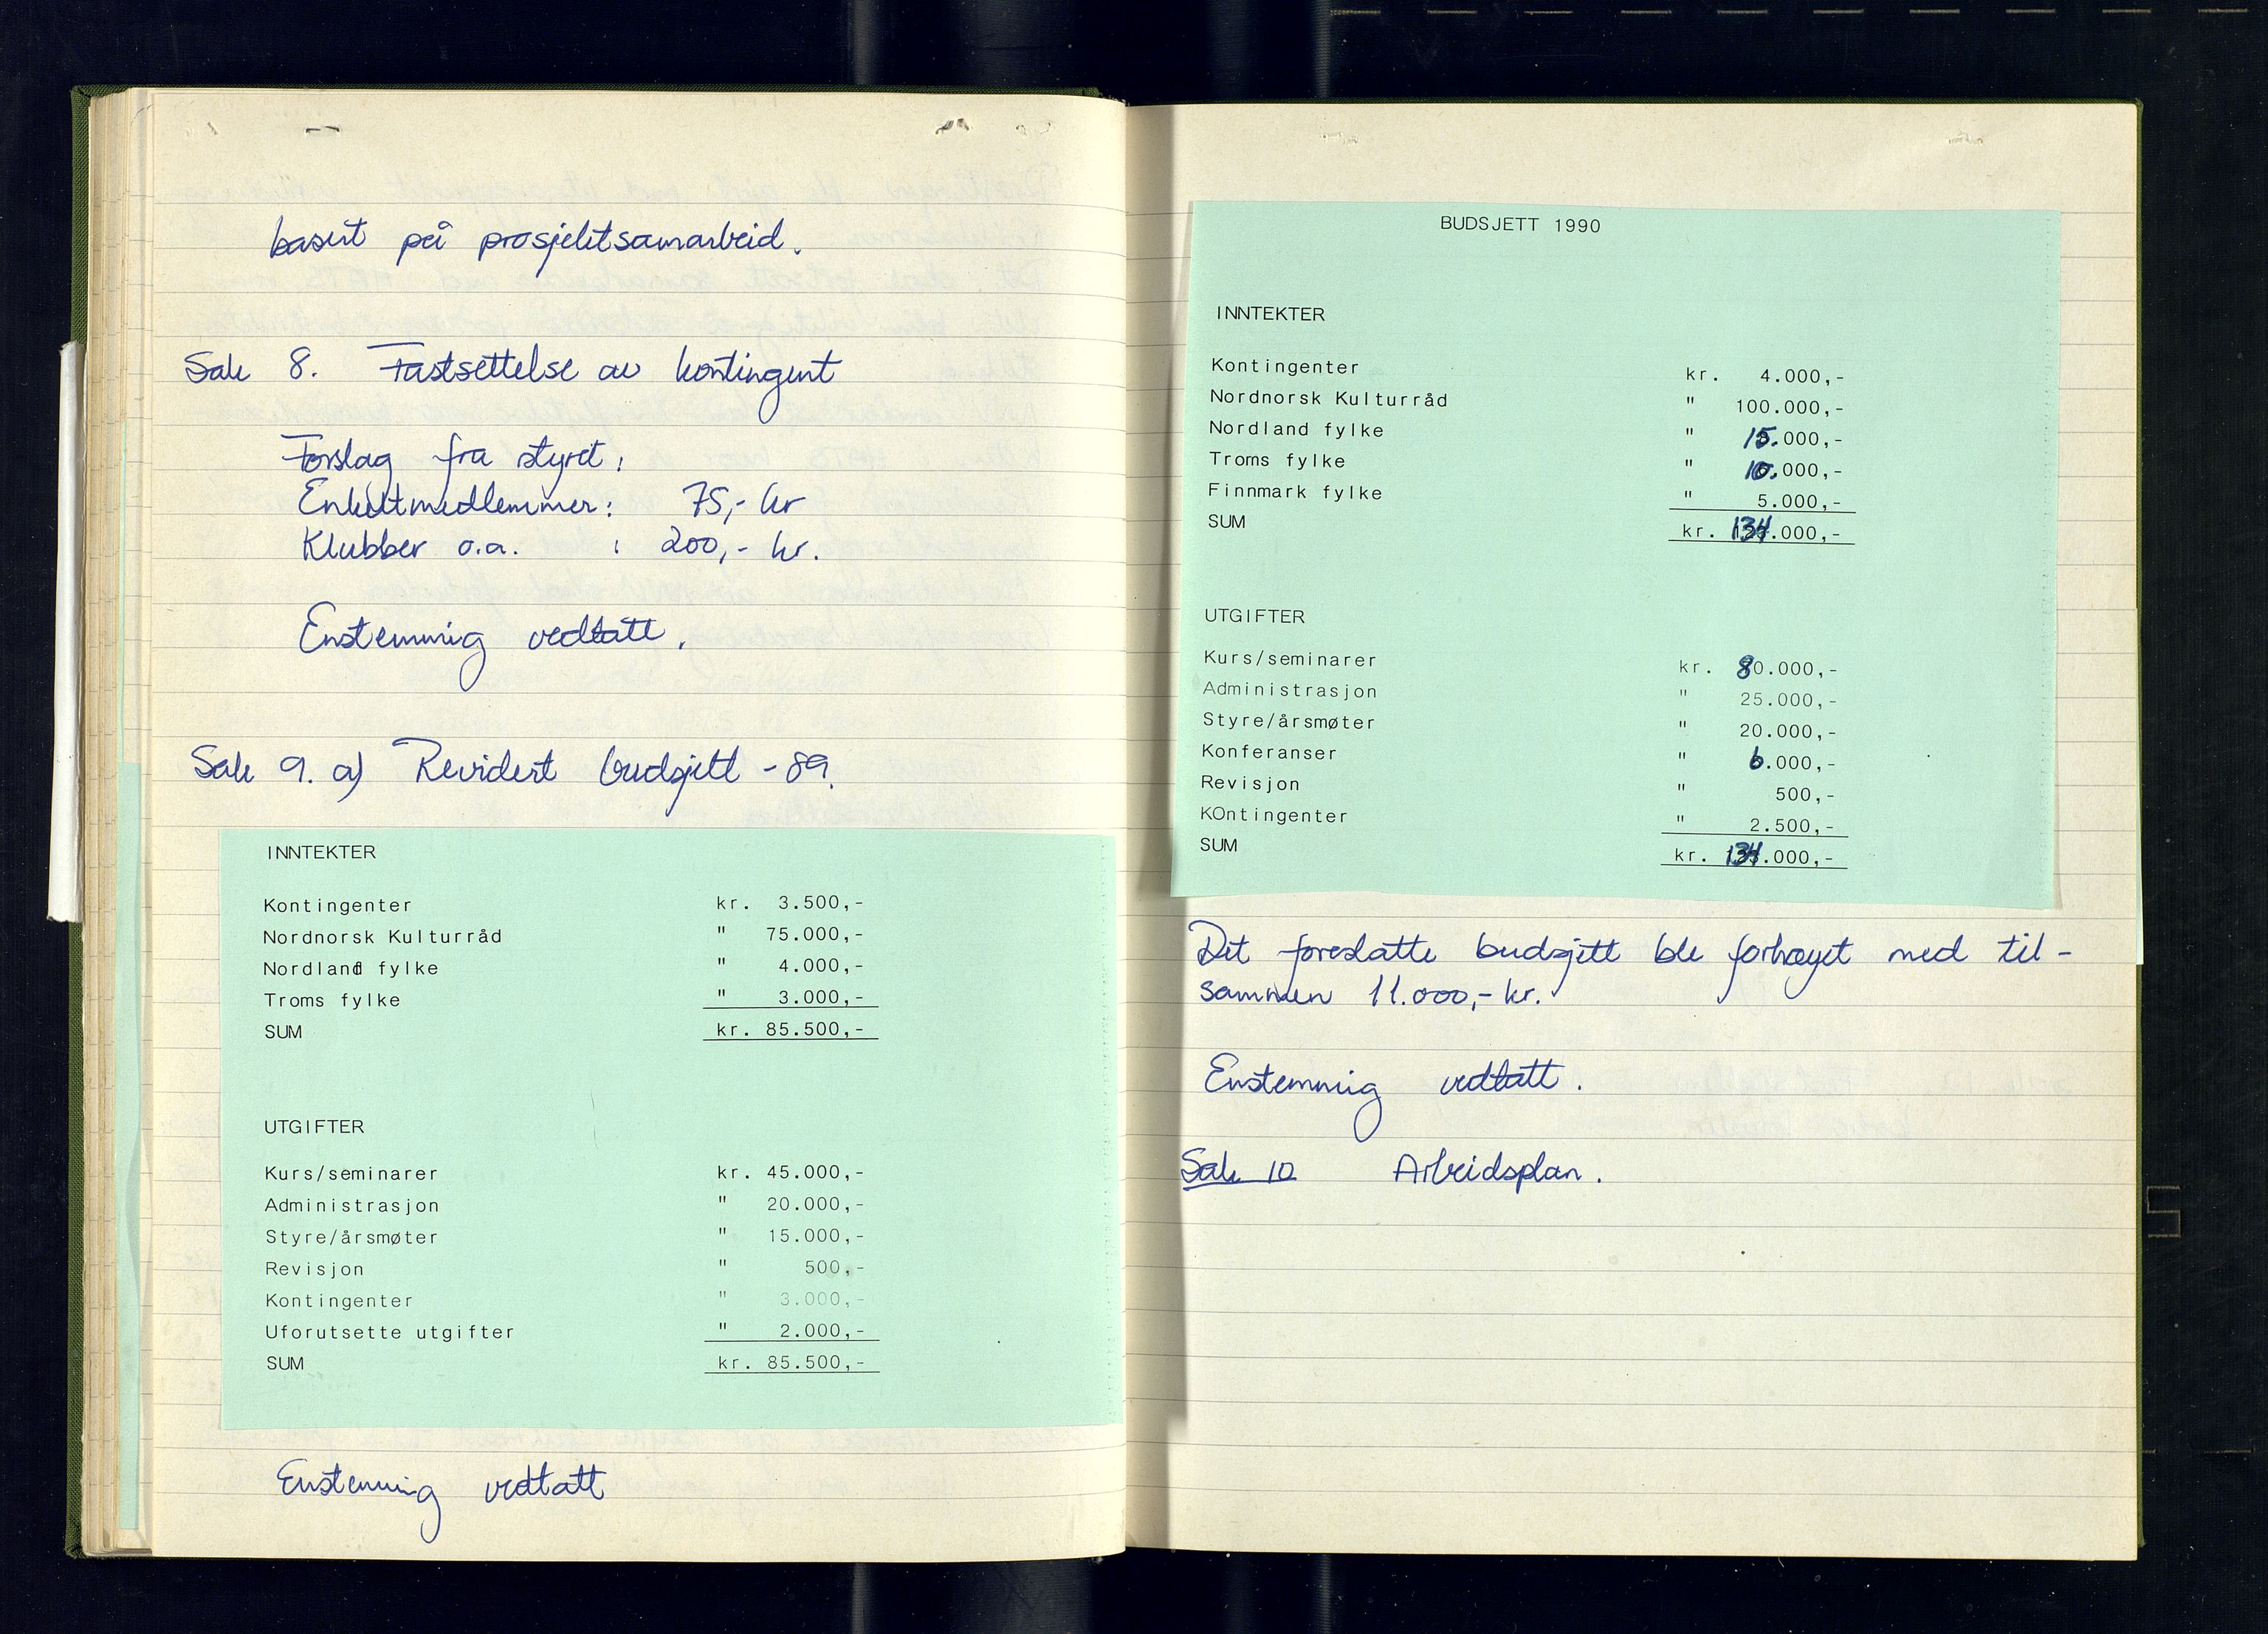 basert på prosjektsamarbeid.
Sak 8. Fastsettelse av kontingent
Forslag fra styret:
Enkeltmedlemmer: 75,- kr
Klubber o.a. : 200,- kr.
Enstemmig vedtatt.
Sak 9. a) Revidert budsjett -89.
INNTEKTER
Kontingenter kr. 3.500,-
Nordnorsk Kulturråd " 75.000,-
Nordland fylke " 4.000,-
Troms fylke " 3.000,-
SUM kr. 85.500,-
UTGIFTER
Kurs/seminarer kr. 45.000,-
Administrasjon " 20.000,-
Styre/årsmøter " 15.000,-
Revisjon " 500,-
Kontingenter " 3.000,-
Uforutsette utgifter " 2.000,-
SUM kr. 85.500,-
Enstemmig vedtatt
BUDSJETT 1990
INNTEKTER
Kontingenter kr. 4.000,-
Nordnorsk Kulturråd " 100.000,-
Nordland fylke " 15.000,-
Troms fylke " 10.000,-
Finnmark fylke " 5.000,-
SUM kr. 134.000,-
UTGIFTER
Kurs/seminarer kr. 80.000,-
Administrasjon " 25.000,-
Styre/årsmøter " 20.000,-
Konferanser " 6.000,-
Revisjon " 500,-
KOntingenter " 2.500,-
SUM kr. 134.000,-
Det foreslatte budsjett ble forhøyet med til-
sammen 11.000,- kr.
Enstemmig vedtatt.
Sak 10 Arbeidsplan.